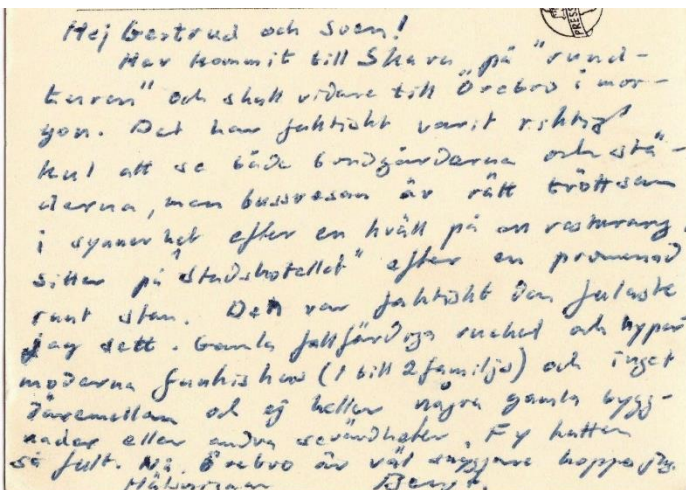 PRESS
Hej Gertrud och Sven!
Har kommit till Skara på "rund-
turen" och skall vidare till Örebro i mor-
gon. Det har faktiskt varit riktigt
kul att se både bondgårdarna och stä-
derna, men bussresan är rätt tröttsam
i synnerhet efter en kväll på en resturang.
sitter på "stadshotellet" efter en promenad
runt stan. Det var faktiskt den fulaste
jag sett. Gamla fallfärdiga ruckel och hyper
moderna funkishus (1 till 2 familjs) och inget
däremellan och ej heller några gamla bygg-
nader eller andra sevärdheter. Fy katten
så fult. Nå, Örebro är väl snyggare hoppas jag.
Hälsningar Bengt.